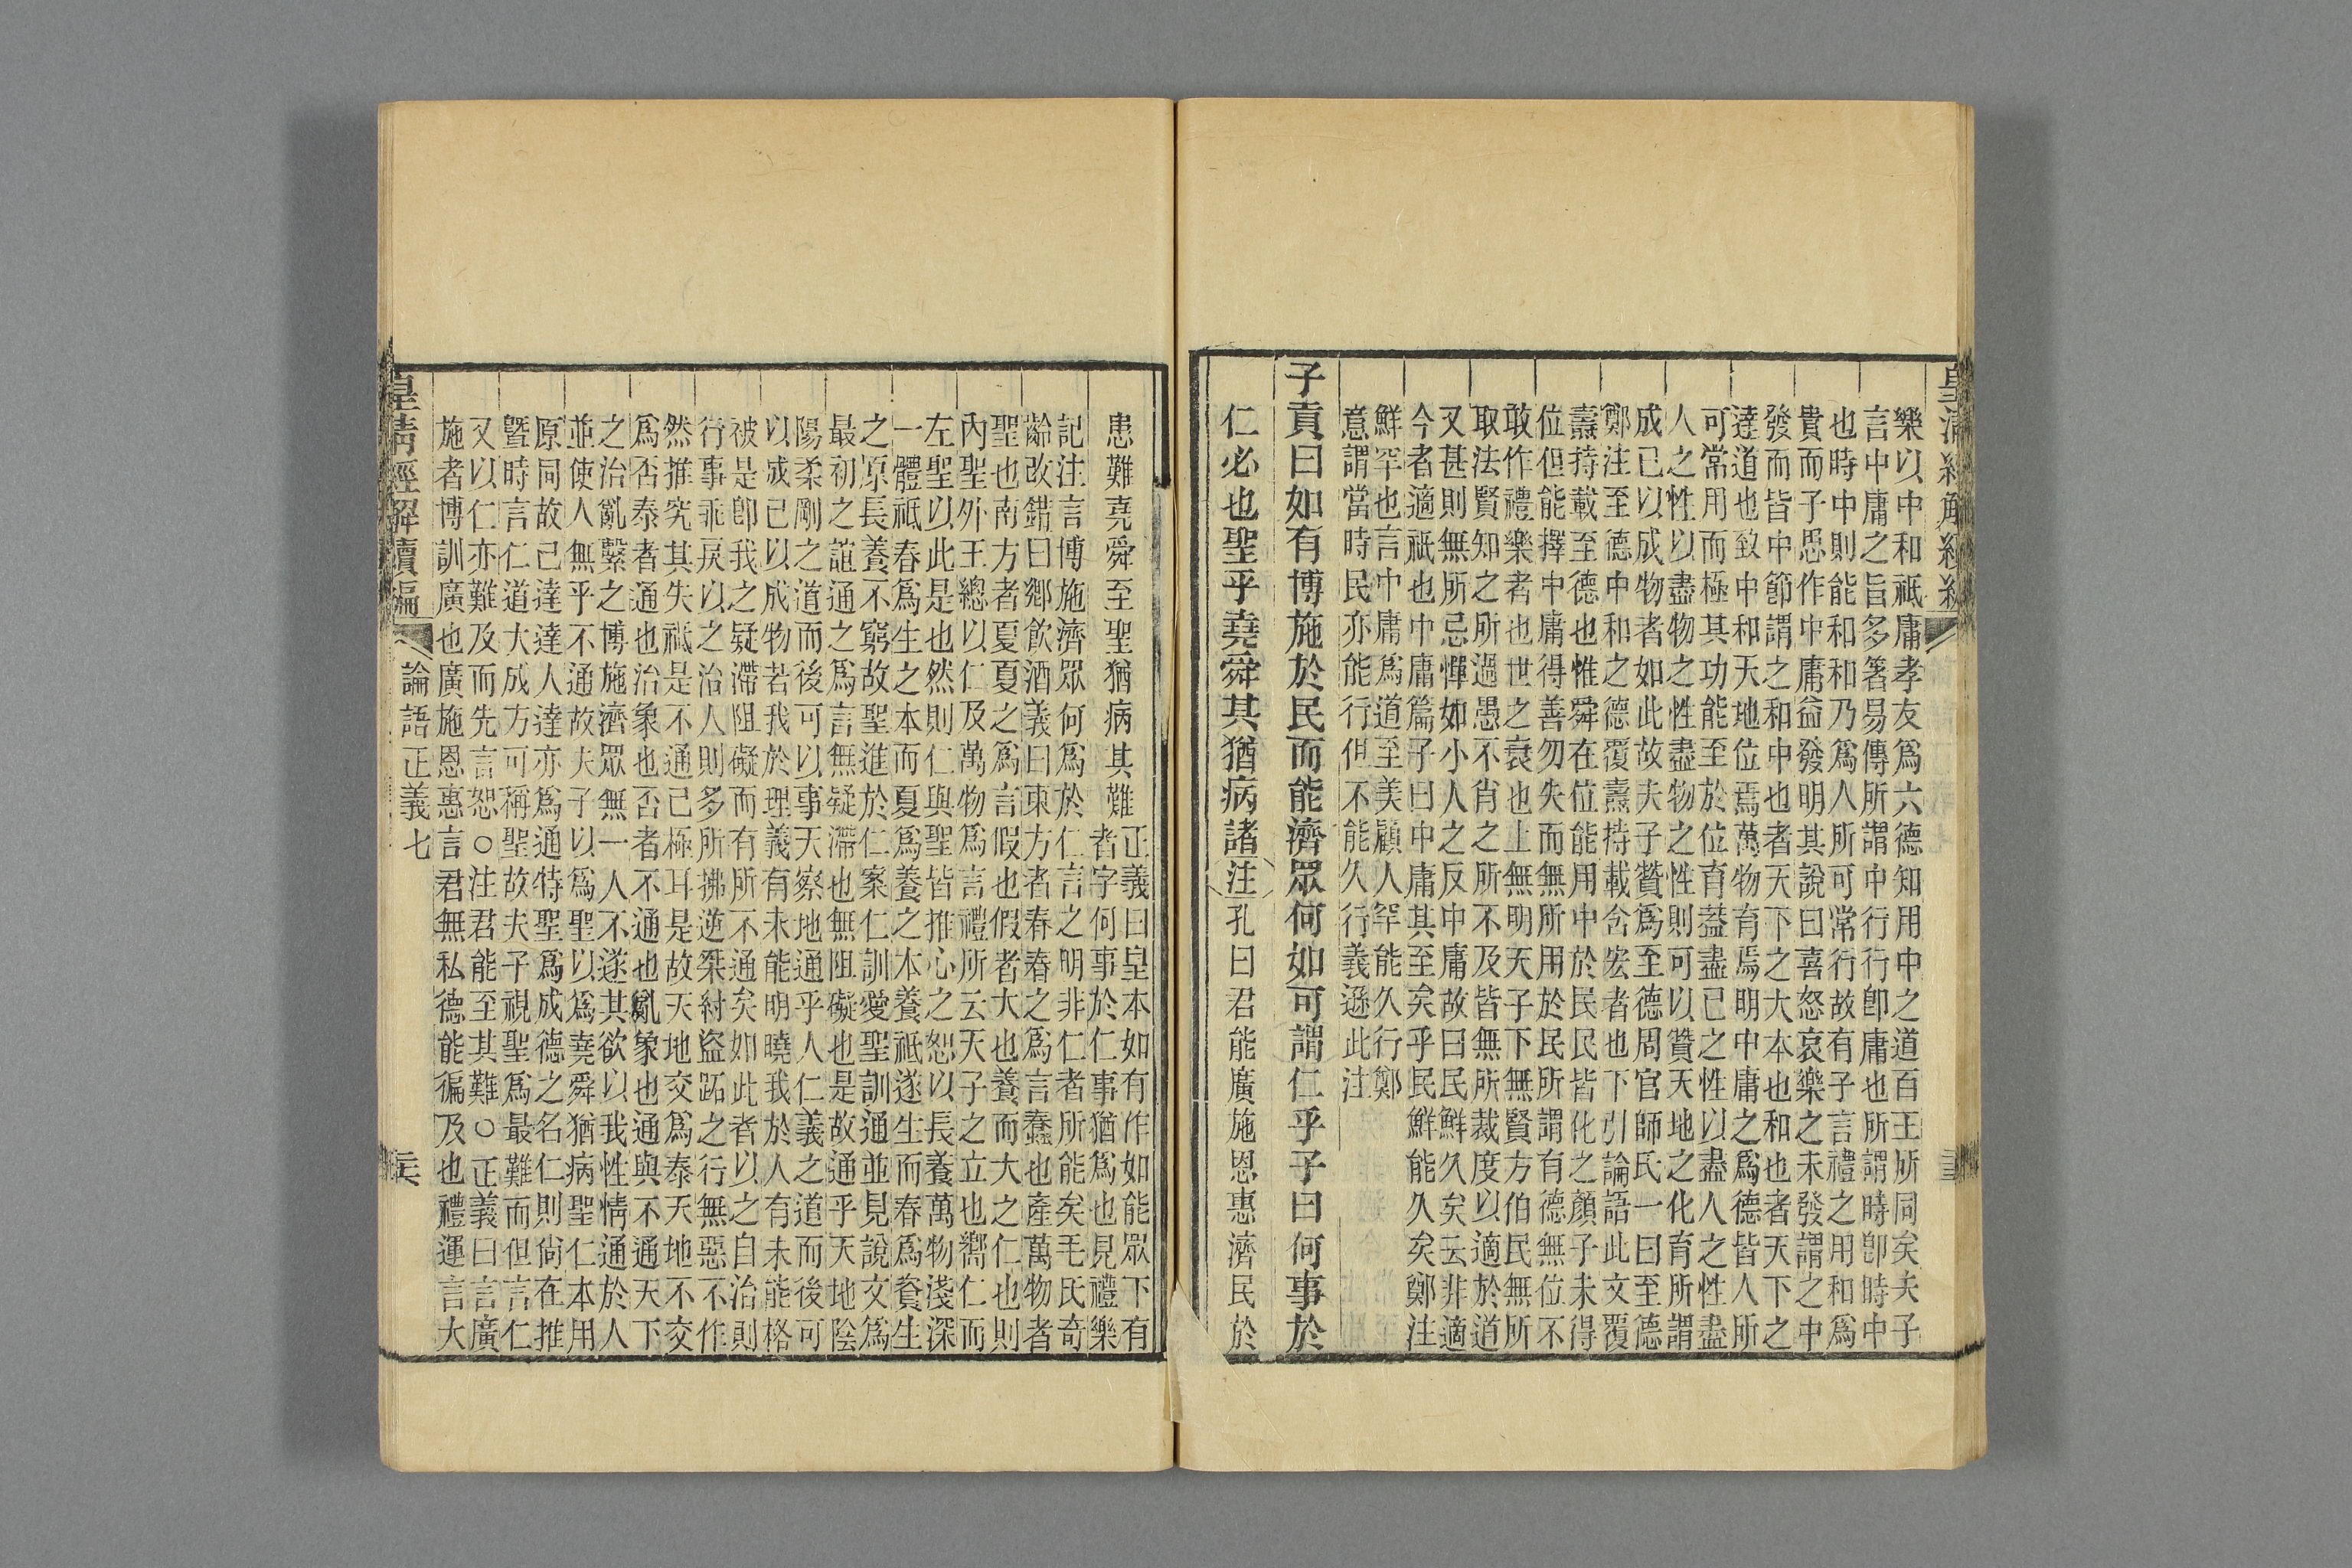 樂以中和祗庸孝友爲六德知用中之道百王所同矣夫子
言中庸之旨多箸易傳所謂中行行卽庸也所謂時卽時中
也時中則能和和乃爲人所可常行故有子言禮之用和爲
貴而子思作中庸益發明其說曰喜怒哀樂之未發謂之中
發而皆中節謂之和中也者天下之大本也和也者天下之
達道也致中和天地位焉萬物育焉明中庸之爲德皆人所
可常用而極其功能至於位育葢盡己之性以盡人之性盡
人之性以盡物之性盡物之性則可以贊天地之化育所謂
成己以成物者如此故夫子贊爲至德周官師氏一曰至德
鄭注至德中和之德覆燾持載含宏者也下引論語此文覆
燾持載至德也惟舜在位能用中於民民皆化之顏子未得
位但能擇中庸得善勿失而無所用於民所謂有德無位不
敢作禮樂者也世之衰也上無明天子下無賢方伯民無所
取法賢知之所過愚不肖之所不及皆無所裁度以適於道
又甚則無所忌憚如小人之反中庸故曰民鮮久矣云非適
今者適祗也中庸篇子曰中庸其至矣乎民鮮能久矣鄭注
鮮罕也言中庸爲道至美顧人罕能久行鄭
意謂當時民亦能行但不能久行義遜此注
子貢曰如有博施於民而能濟眾何如可謂仁乎子曰何事於
仁必也聖乎堯舜其猶病諸注孔曰君能廣施恩惠濟民於
患難堯舜至聖猶病其難
正義曰皇本如有作如能眾下有
者字何事於仁事猶爲也見禮樂
記注言博施濟眾何爲於仁言之明非仁者所能矣毛氏奇
齡改錯曰鄉飲酒義曰東方者春春之爲言蠢也產萬物者
聖也南方者夏夏之爲言假也假者大也養而大之仁也則
內聖外王總以仁及萬物爲言禮所云天子之立也嚮仁而
左聖以此是也然則仁與聖皆推心之恕以長養萬物淺深
一體祗春爲生之本而夏爲養之本養祗遂生而春爲資生
之原長養不窮故聖進於仁案仁訓愛聖訓通並見說文爲
最初之誼通之爲言無疑滯也無阻礙也是故通乎天地陰
陽柔剛之道而後可以事天察地通乎人仁義之道而後可
以成己以成物若我於理義有未能明曉我於人有未能格
被是卽我之疑滯阻礙而有所不通矣如此者以之自治則
行事乖戾以之治人則多所拂逆桀紂盜跖之行無惡不作
然推究其失祗是不通已極耳是故天地交爲泰天地不交
爲否泰者通也治象也否者不通也亂象也通與不通天下
之治亂繫之博施濟眾無一人不遂其欲以我性情通於人
並使人無乎不通故夫子以爲聖以爲堯舜猶病聖仁本用
原同故己達達人達亦爲通特聖爲成德之名仁則尙在推
暨時言仁道大成方可稱聖故夫子視聖爲最難而但言仁
又以仁亦難及而先言恕○注君能至其難○正義曰言廣
施者博訓廣也廣施恩惠言君無私德能徧及也禮運言大
皇清經解續編
論語正義七